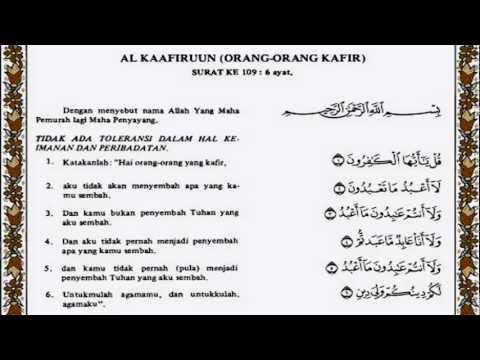 AL KAAFIRUUN (ORANG-ORANG KAFIR)
SURAT KE 109 : 6 ayat.
Dengan menyebut nama Allah Yang Maha
Pemurah lagi Maha Penyayang.
بِسْمِ اللَّهِ الرَّحْمَٰنِ الرَّحِيمِ
TIDAK ADA TOLERANSI DALAM HAL KE-
IMANAN DAN PERIBADATAN.
1. Katakanlah: "Hai orang-orang yang kafir,
قُلْ يَٰٓأَيُّهَا ٱلْكَٰفِرُونَ ١
2. aku tidak akan menyembah apa yang ka-
mu sembah.
لَآ أَعْبُدُ مَا تَعْبُدُونَ ٢
3. Dan kamu bukan penyembah Tuhan yang
aku sembah.
وَلَآ أَنتُمْ عَٰبِدُونَ مَآ أَعْبُدُ ٣
4. Dan aku tidak pernah menjadi penyembah
apa yang kamu sembah.
وَلَآ أَنَا۠ عَابِدٌ مَّا عَبَدتُّمْ ٤
5. dan kamu tidak pernah (pula) menjadi
penyembah Tuhan yang aku sembah.
وَلَآ أَنتُمْ عَٰبِدُونَ مَآ أَعْبُدُ ٥
6. Untukmulah agamamu, dan untukkulah,
agamaku".
لَكُمْ دِينُكُمْ وَلِىَ دِينِ ٦